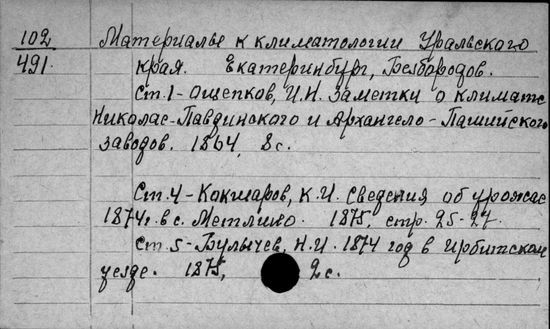 102
491.
Материалы к климатологии Уральского
края. Екатеринбург, Безбородов.
Ст.1-Ощепков, И.Н. Заметки о климате
Николае-Павдинского и Архангело-Пашийского
заводов. 1864, 8с.
Ст.4-Кокшаров, К.И. Сведения об урожае
1874г. в с. Метлино. 1875, стр. 25-27.
Ст.5-Булычев, Н.И. 1874 год в Ирбитском
уезде. 1875, 2с.